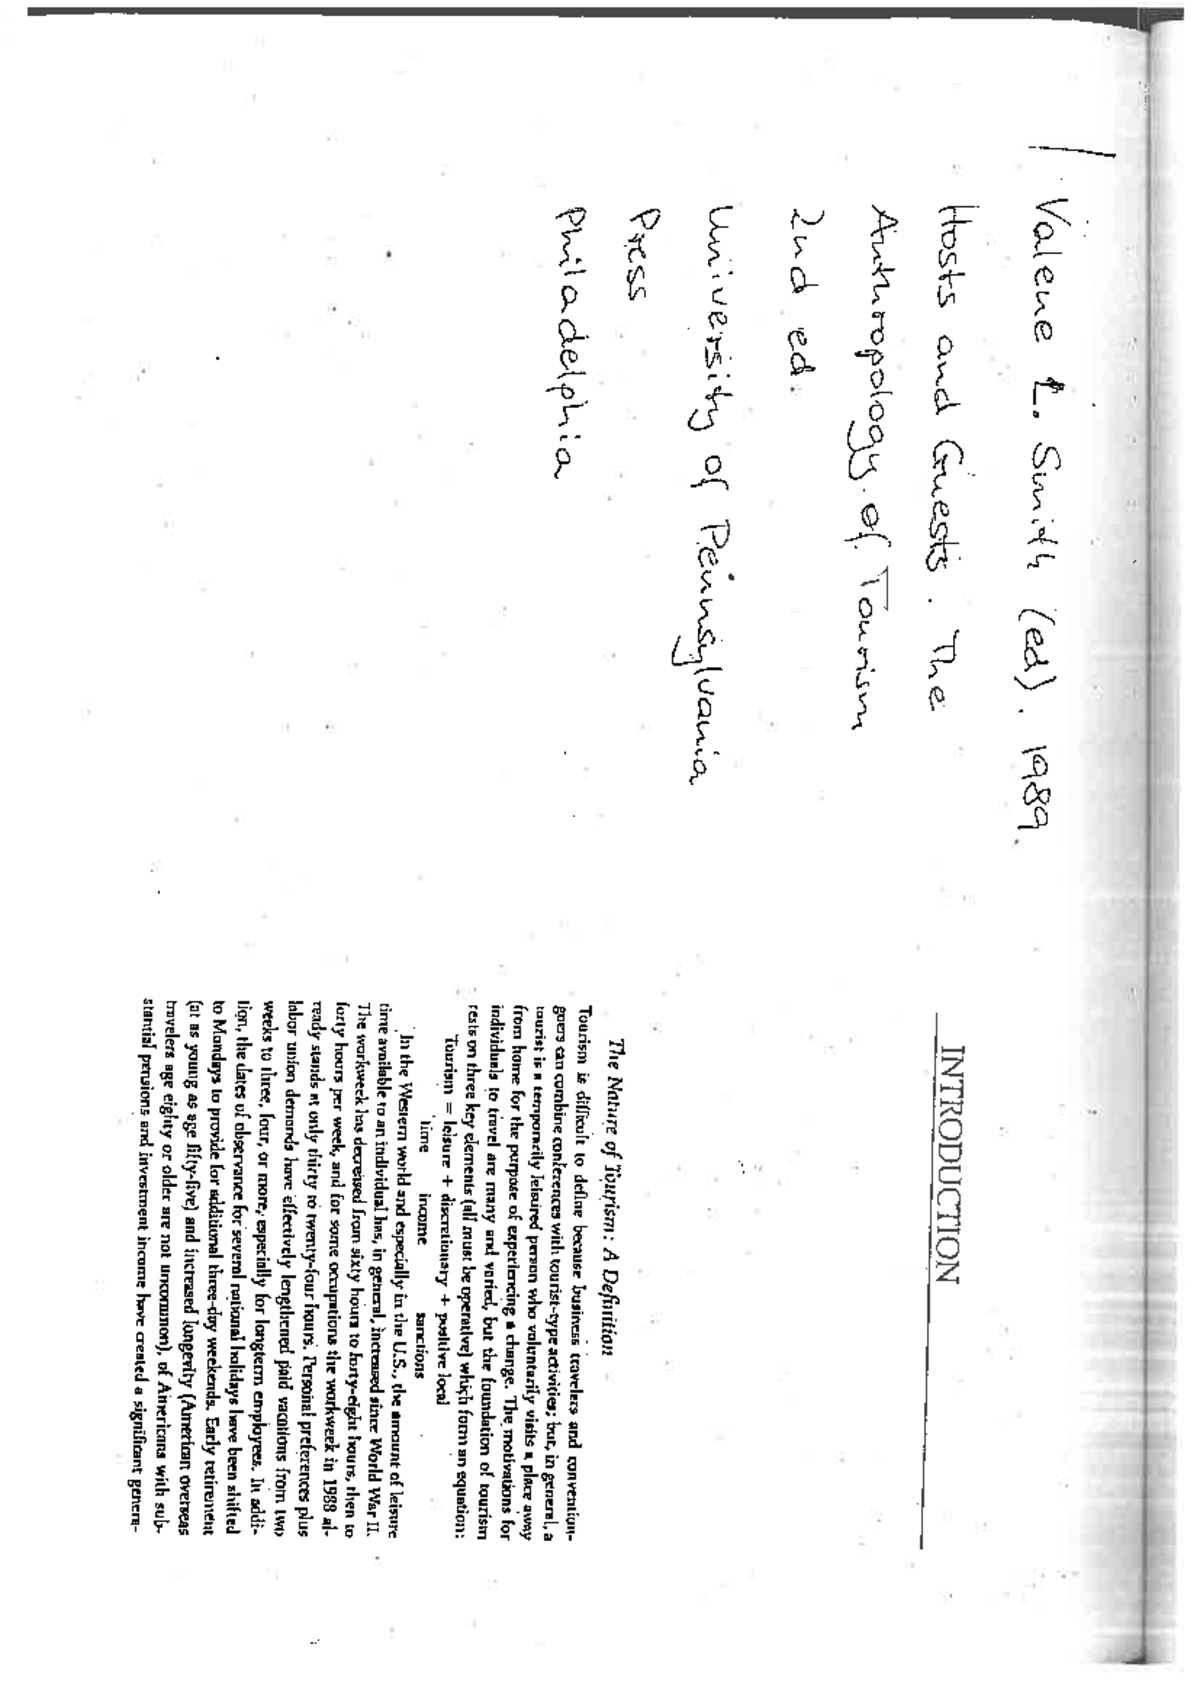 Valene L. Smith (ed). 1989.
Hosts and Guests. The
Anthropology of Tourism
2nd ed.
University of Pennsylvania
Press
Philadelphia
INTRODUCTION
The Nature of Tourism: A Definition
Tourism is difficult to define because business travelers and convention-
goers can combine conferences with tourist-type activities; but, in general, a
tourist is a temporarily leisured person who voluntarily visits a place away
from home for the purpose of experiencing a change. The motivations for
individuals to travel are many and varied, but the foundation of tourism
rests on three key elements (all must be operative) which form an equation:
Tourism = leisure + discretionary + positive local
time income sanctions
In the Western world and especially in the U.S., the amount of leisure
time available to an individual has, in general, increased since World War II.
The workweek has decreased from sixty hours to forty-eight hours, then to
forty hours per week, and for some occupations the workweek in 1988 al-
ready stands at only thirty to twenty-four hours. Personal preferences plus
labor union demands have effectively lengthened paid vacations from two
weeks to three, four, or more, especially for longterm employees. In addi-
tion, the dates of observance for several national holidays have been shifted
to Mondays to provide for additional three-day weekends. Early retirement
(at as young as age fifty-five) and increased longevity (American overseas
travelers age eighty or older are not uncommon), of Americans with sub-
stantial pensions and investment income have created a significant genera-